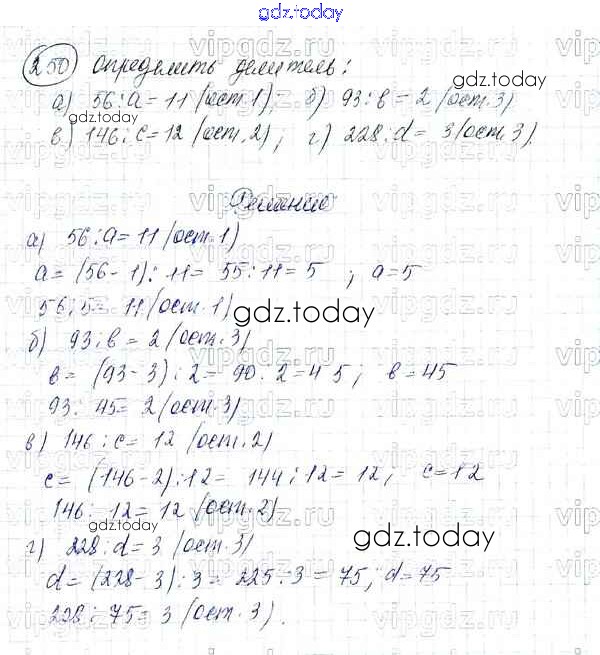 gdz.today
250 Определить делитель:
а) 56:a = 11 (ост.1); б) 93:в = 2 (ост.3)
в) 146:c = 12 (ост.2); г) 228:d = 3 (ост.3).
Решение
а) 56:a = 11 (ост.1)
a = (56-1):11 = 55:11 = 5; a=5
56:5 = 11 (ост.1)
gdz.today
б) 93:в = 2 (ост.3)
в = (93-3):2 = 90:2 = 45; в = 45
93:45 = 2 (ост.3)
в) 146:c = 12 (ост.2)
c = (146-2):12 = 144:12 = 12; c=12
146:12 = 12 (ост.2)
gdz.today
г) 228:d = 3 (ост.3)
d = (228-3):3 = 225:3 = 75; d=75
228:75 = 3 (ост.3).